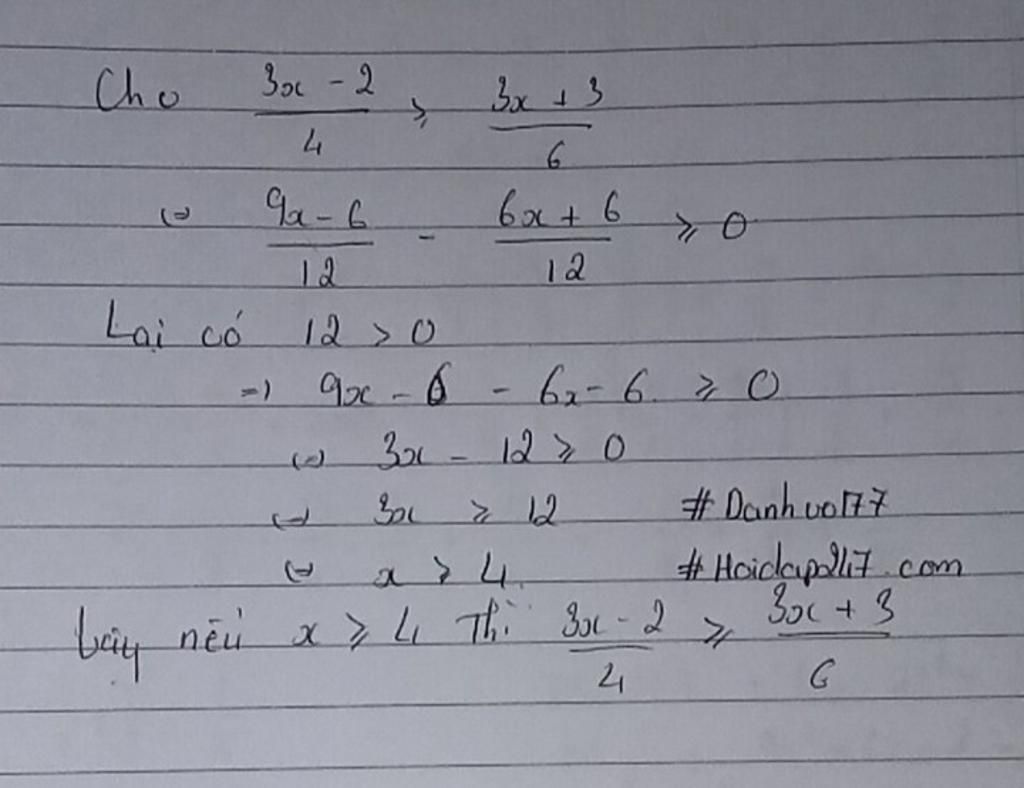 Cho (3x - 2)/4 ≥ (3x + 3)/6
(=) (9x - 6)/12 - (6x + 6)/12 ≥ 0
Lại có 12 > 0
=) 9x - 6 - 6x - 6 ≥ 0
(=) 3x - 12 ≥ 0
(=) 3x ≥ 12 #Danhvo177
(=) x ≥ 4. #Hoidap247.com
Vậy nếu x ≥ 4 Thì (3x - 2)/4 ≥ (3x + 3)/6